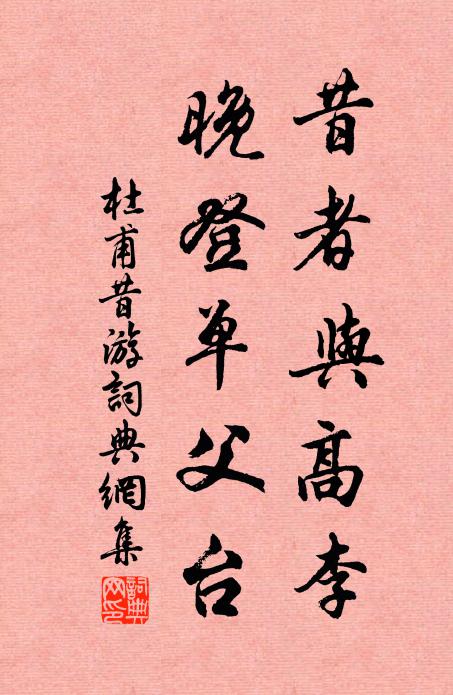 昔者與高李
晚登单父台
杜甫昔游詞典網集
詞典
网印